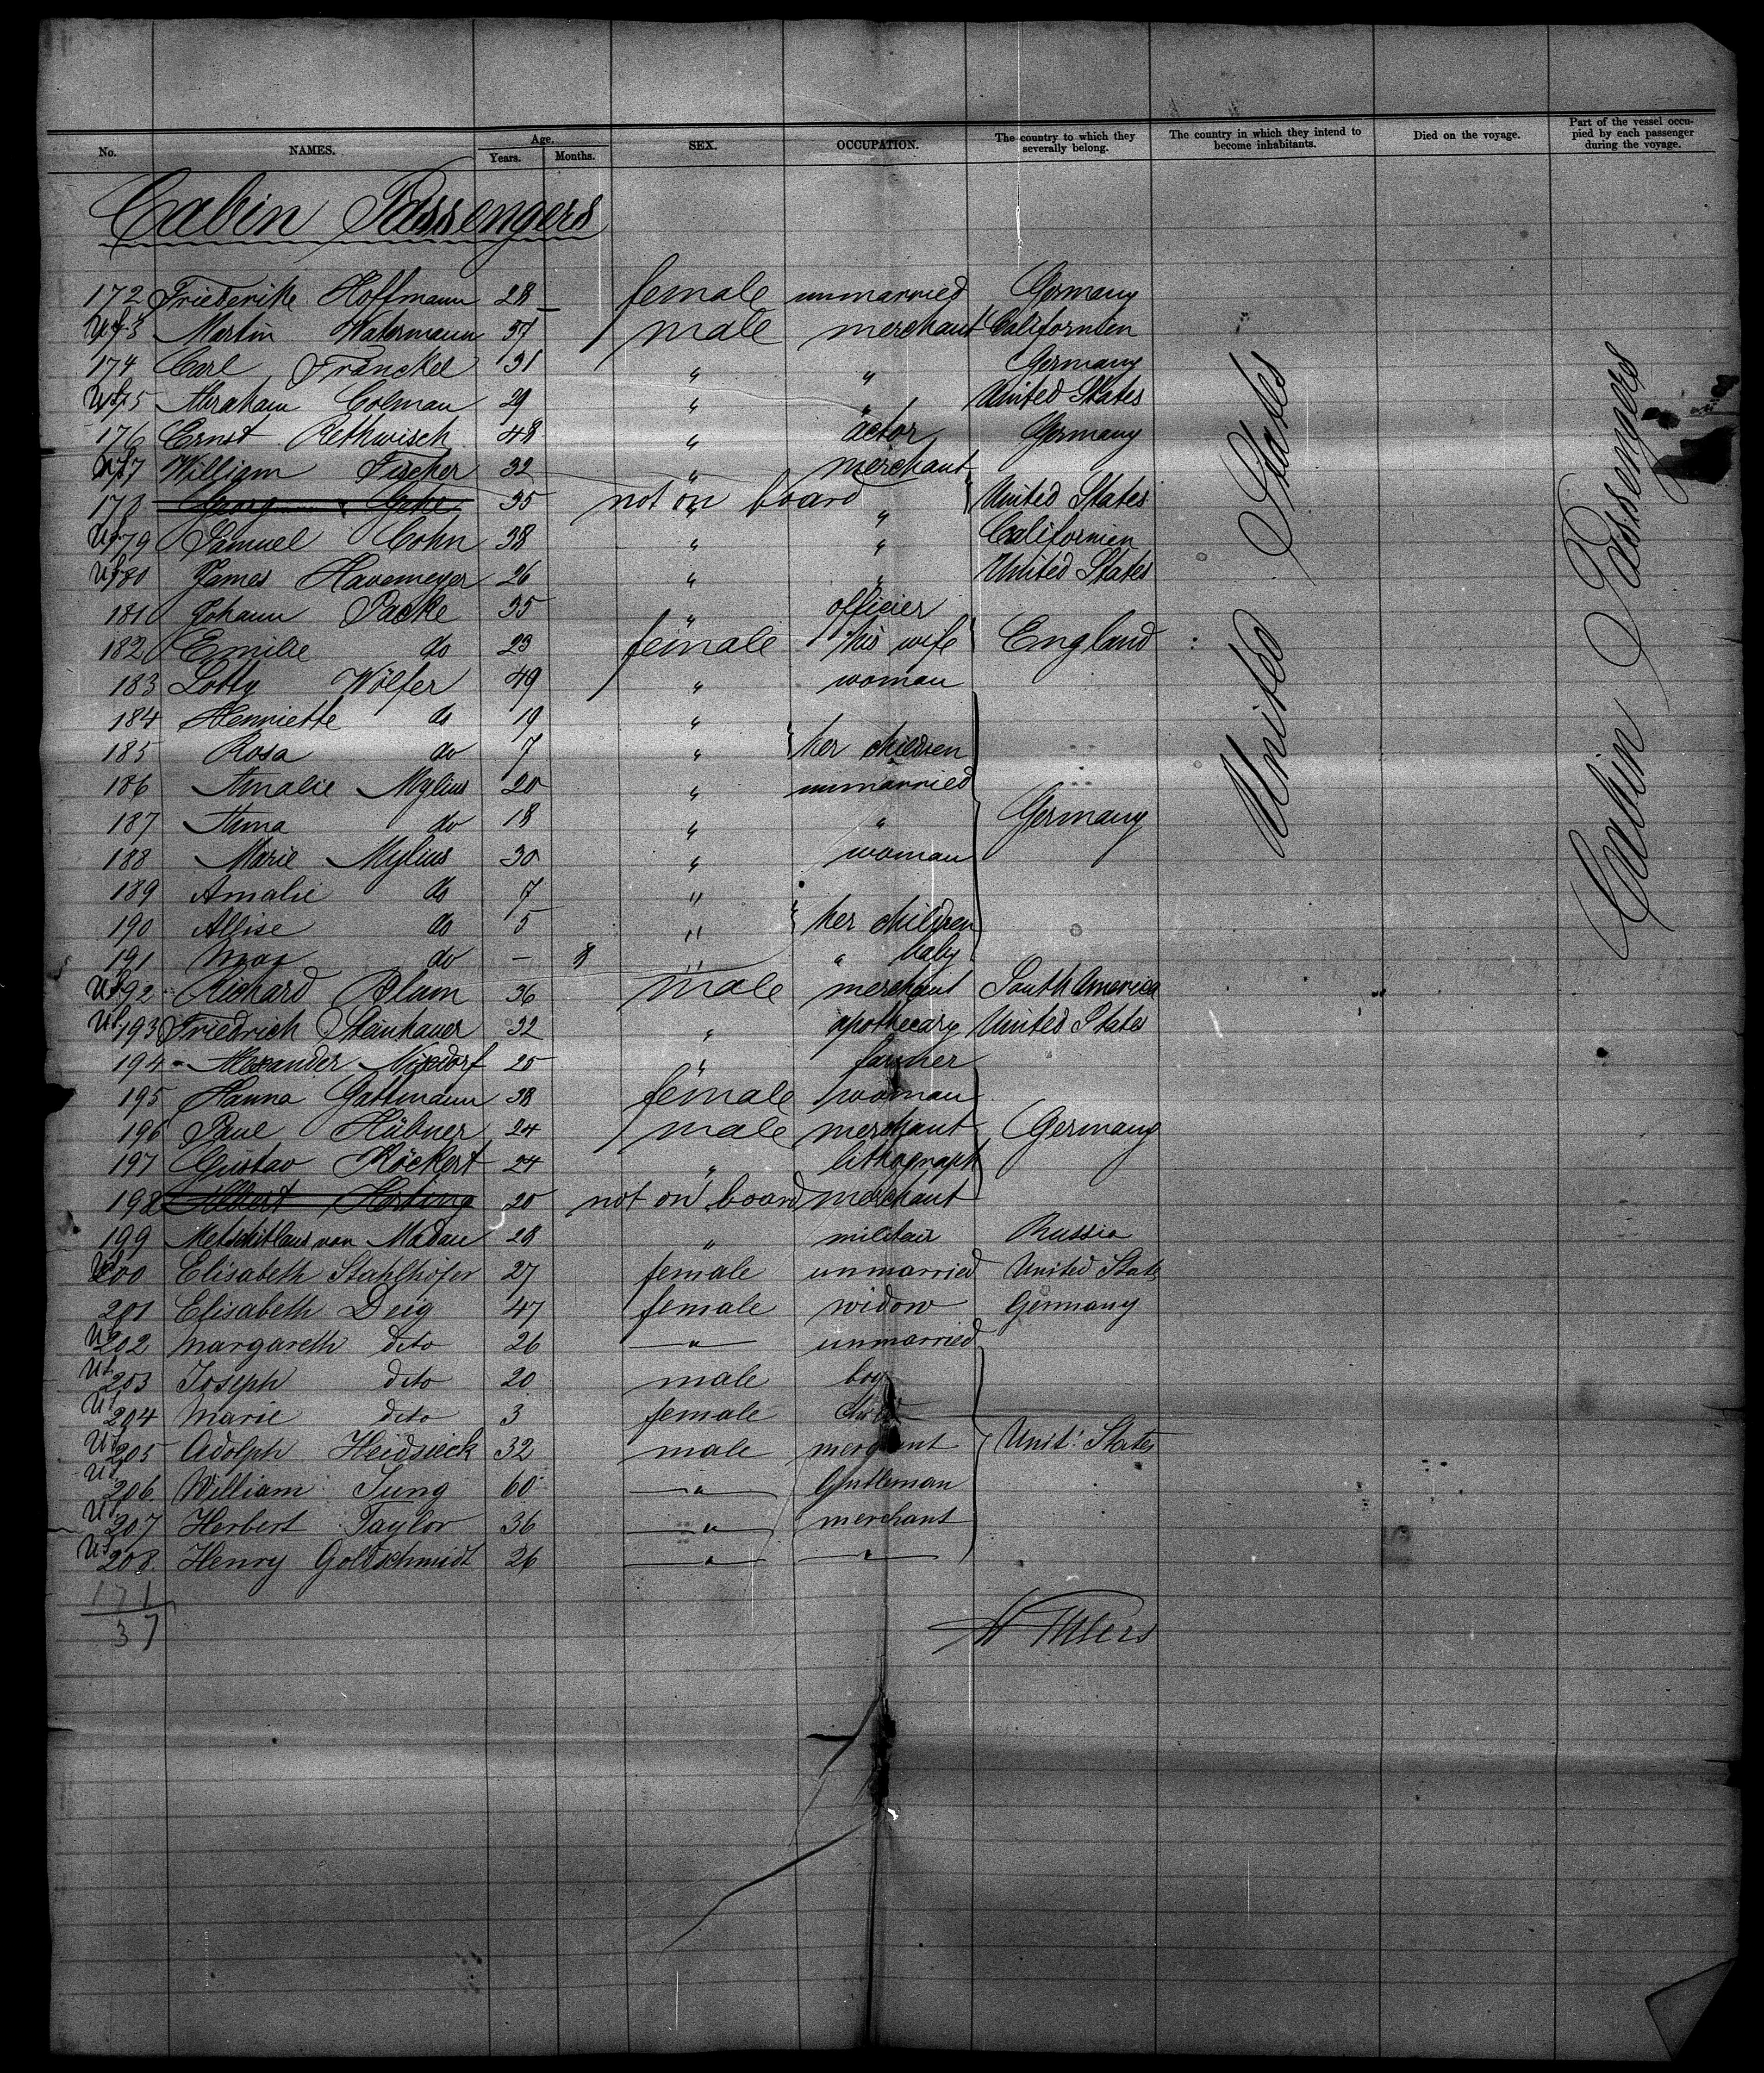 No. NAMES. Age. Years. Months. SEX. OCCUPATION. The country to which they severally belong. The country in which they intend to become inhabitants. Died on the voyage. Part of the vessel occupied by each passenger during the voyage.
Cabin Passengers
172 Friederike Hoffmann 28 female unmarried Germany
173 Martin Watermann 37 male merchant Californien
174 Carl Fränckel 31 " " Germany
175 Abraham Colman 29 " " United States
176 Ernst Rethwisch 48 " actor Germany
177 William Fischer 32 " merchant
178 Georg 35 not on board " " United States
179 Samuel Cohn 38 " " Californien
180 James Havemeyer 26 " " United States
181 Johann Packe 35 " officier
182 Emilie do 23 female his wife England
183 Lotty Wölfer 49 " woman
184 Henriette do 19 "
185 Rosa do 7 " her children
186 Amalie Mylius 20 " unmarried
187 Anna do 18 " " Germany
188 Marie Mylius 30 " woman
189 Amalie do 7 "
190 Allise do 5 " her children
191 Max do — 8 " " baby
192 Richard Blum 36 male merchant South America
193 Friedrich Steinhauer 32 " apothecary United States
194 Alexander Nixdorf 25 " farmer
195 Hanna Gattmann 38 female woman
196 Paul Hübner 24 male merchant Germany
197 Gustav Köckert 24 " lithograph
198 Albert Herting 20 not on board merchant
199 von Madau 28 " militair Russia
200 Elisabeth Stahlhofer 27 female unmarried United States
201 Elisabeth Deig 47 female widow Germany
202 Margareth dito 26 " unmarried
203 Joseph dito 20 male boy
204 Marie dito 3 female child
205 Adolph Heidsieck 32 male merchant Unit. States
206. William Jung 60 " Gentleman
207 Herbert Taylor 36 " merchant
208. Henry Goldschmidt 26 " "
171
37
United States
Cabin Passengers